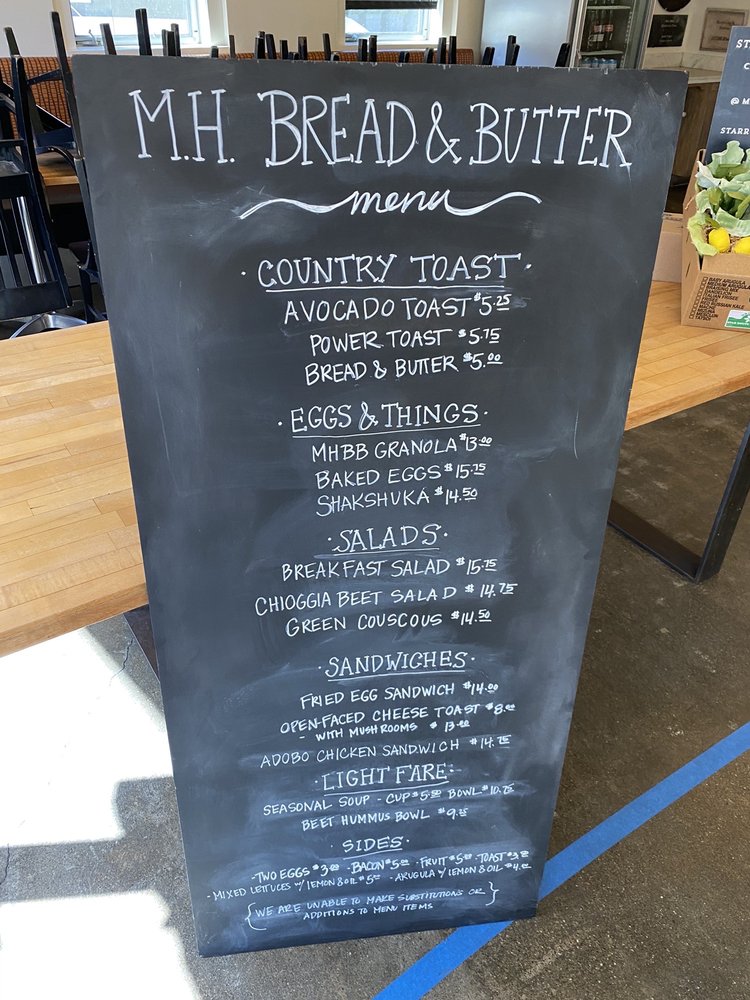 M.H. BREAD & BUTTER
menu
· COUNTRY TOAST ·
AVOCADO TOAST $5.25
POWER TOAST $5.75
BREAD & BUTTER $5.00
· EGGS & THINGS ·
MHBB GRANOLA $13.00
BAKED EGGS $15.75
SHAKSHUKA $14.50
· SALADS ·
BREAKFAST SALAD $15.75
CHIOGGIA BEET SALAD $14.75
GREEN COUSCOUS $14.50
· SANDWICHES ·
FRIED EGG SANDWICH $14.00
OPEN-FACED CHEESE TOAST $8.00
- WITH MUSHROOMS $13.00
ADOBO CHICKEN SANDWICH $14.75
· LIGHT FARE ·
SEASONAL SOUP - CUP $5.50 BOWL $10.75
BEET HUMMUS BOWL $9.25
· SIDES ·
· TWO EGGS $3.00 · BACON $5.00 · FRUIT $5.00 · TOAST
· MIXED LETTUCES W/ LEMON & OIL $5.00 · ARUGULA W/ LEMON & OIL $4.00
{WE ARE UNABLE TO MAKE SUBSTITUTIONS OR
ADDITIONS TO MENU ITEMS}
ST
@M
STARR
BABY ARUGULA